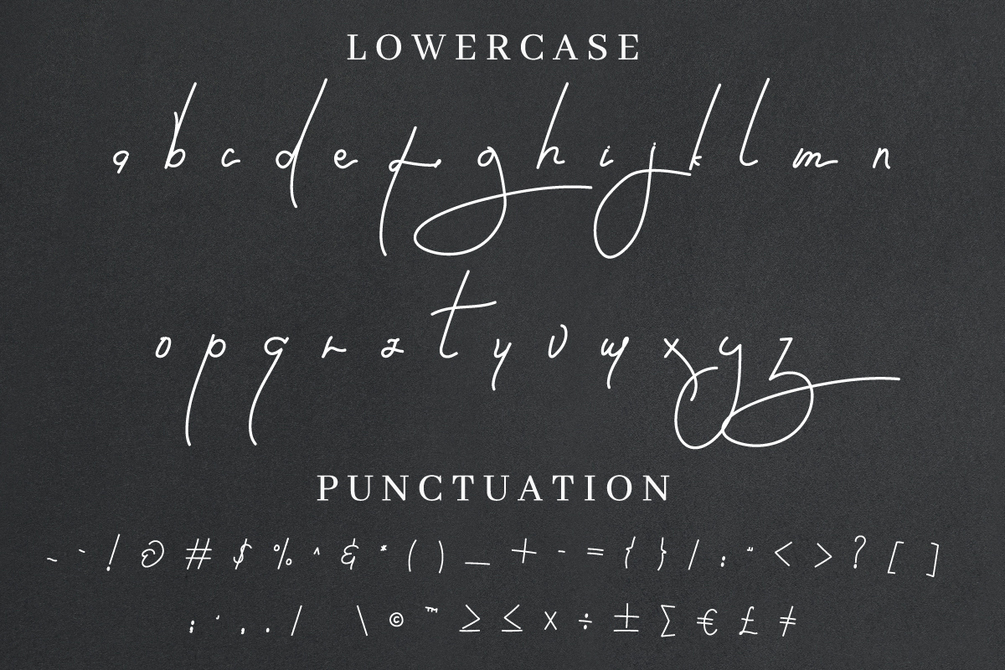 LOWERCASE
a b c d e f g h i j k l m n
o p q r s t u v w x y z
PUNCTUATION
~ ` ! @ # $ % ^ & * ( ) _ + - = { } / : " < > ? [ ]
; ' , . / \ © ™ ≥ ≤ x ÷ ± ∑ € £ ≠